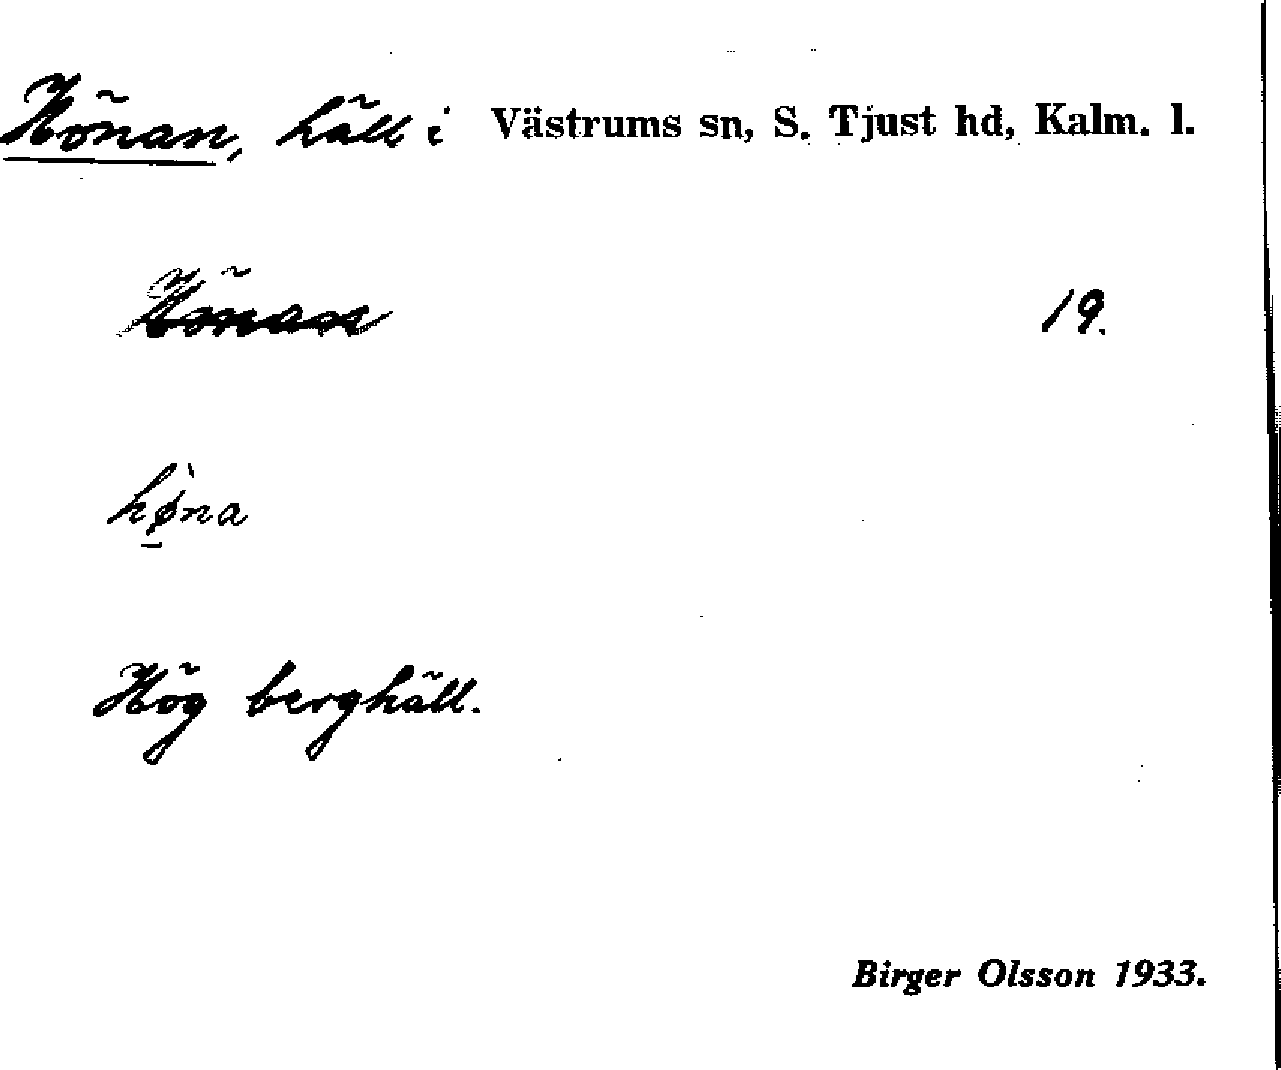 Hönan, häll i Västrums sn, S. Tjust hd, Kalm. l.
Hönan 19.
hø̠̀na
Hög berghäll.
Birger Olsson 1933.